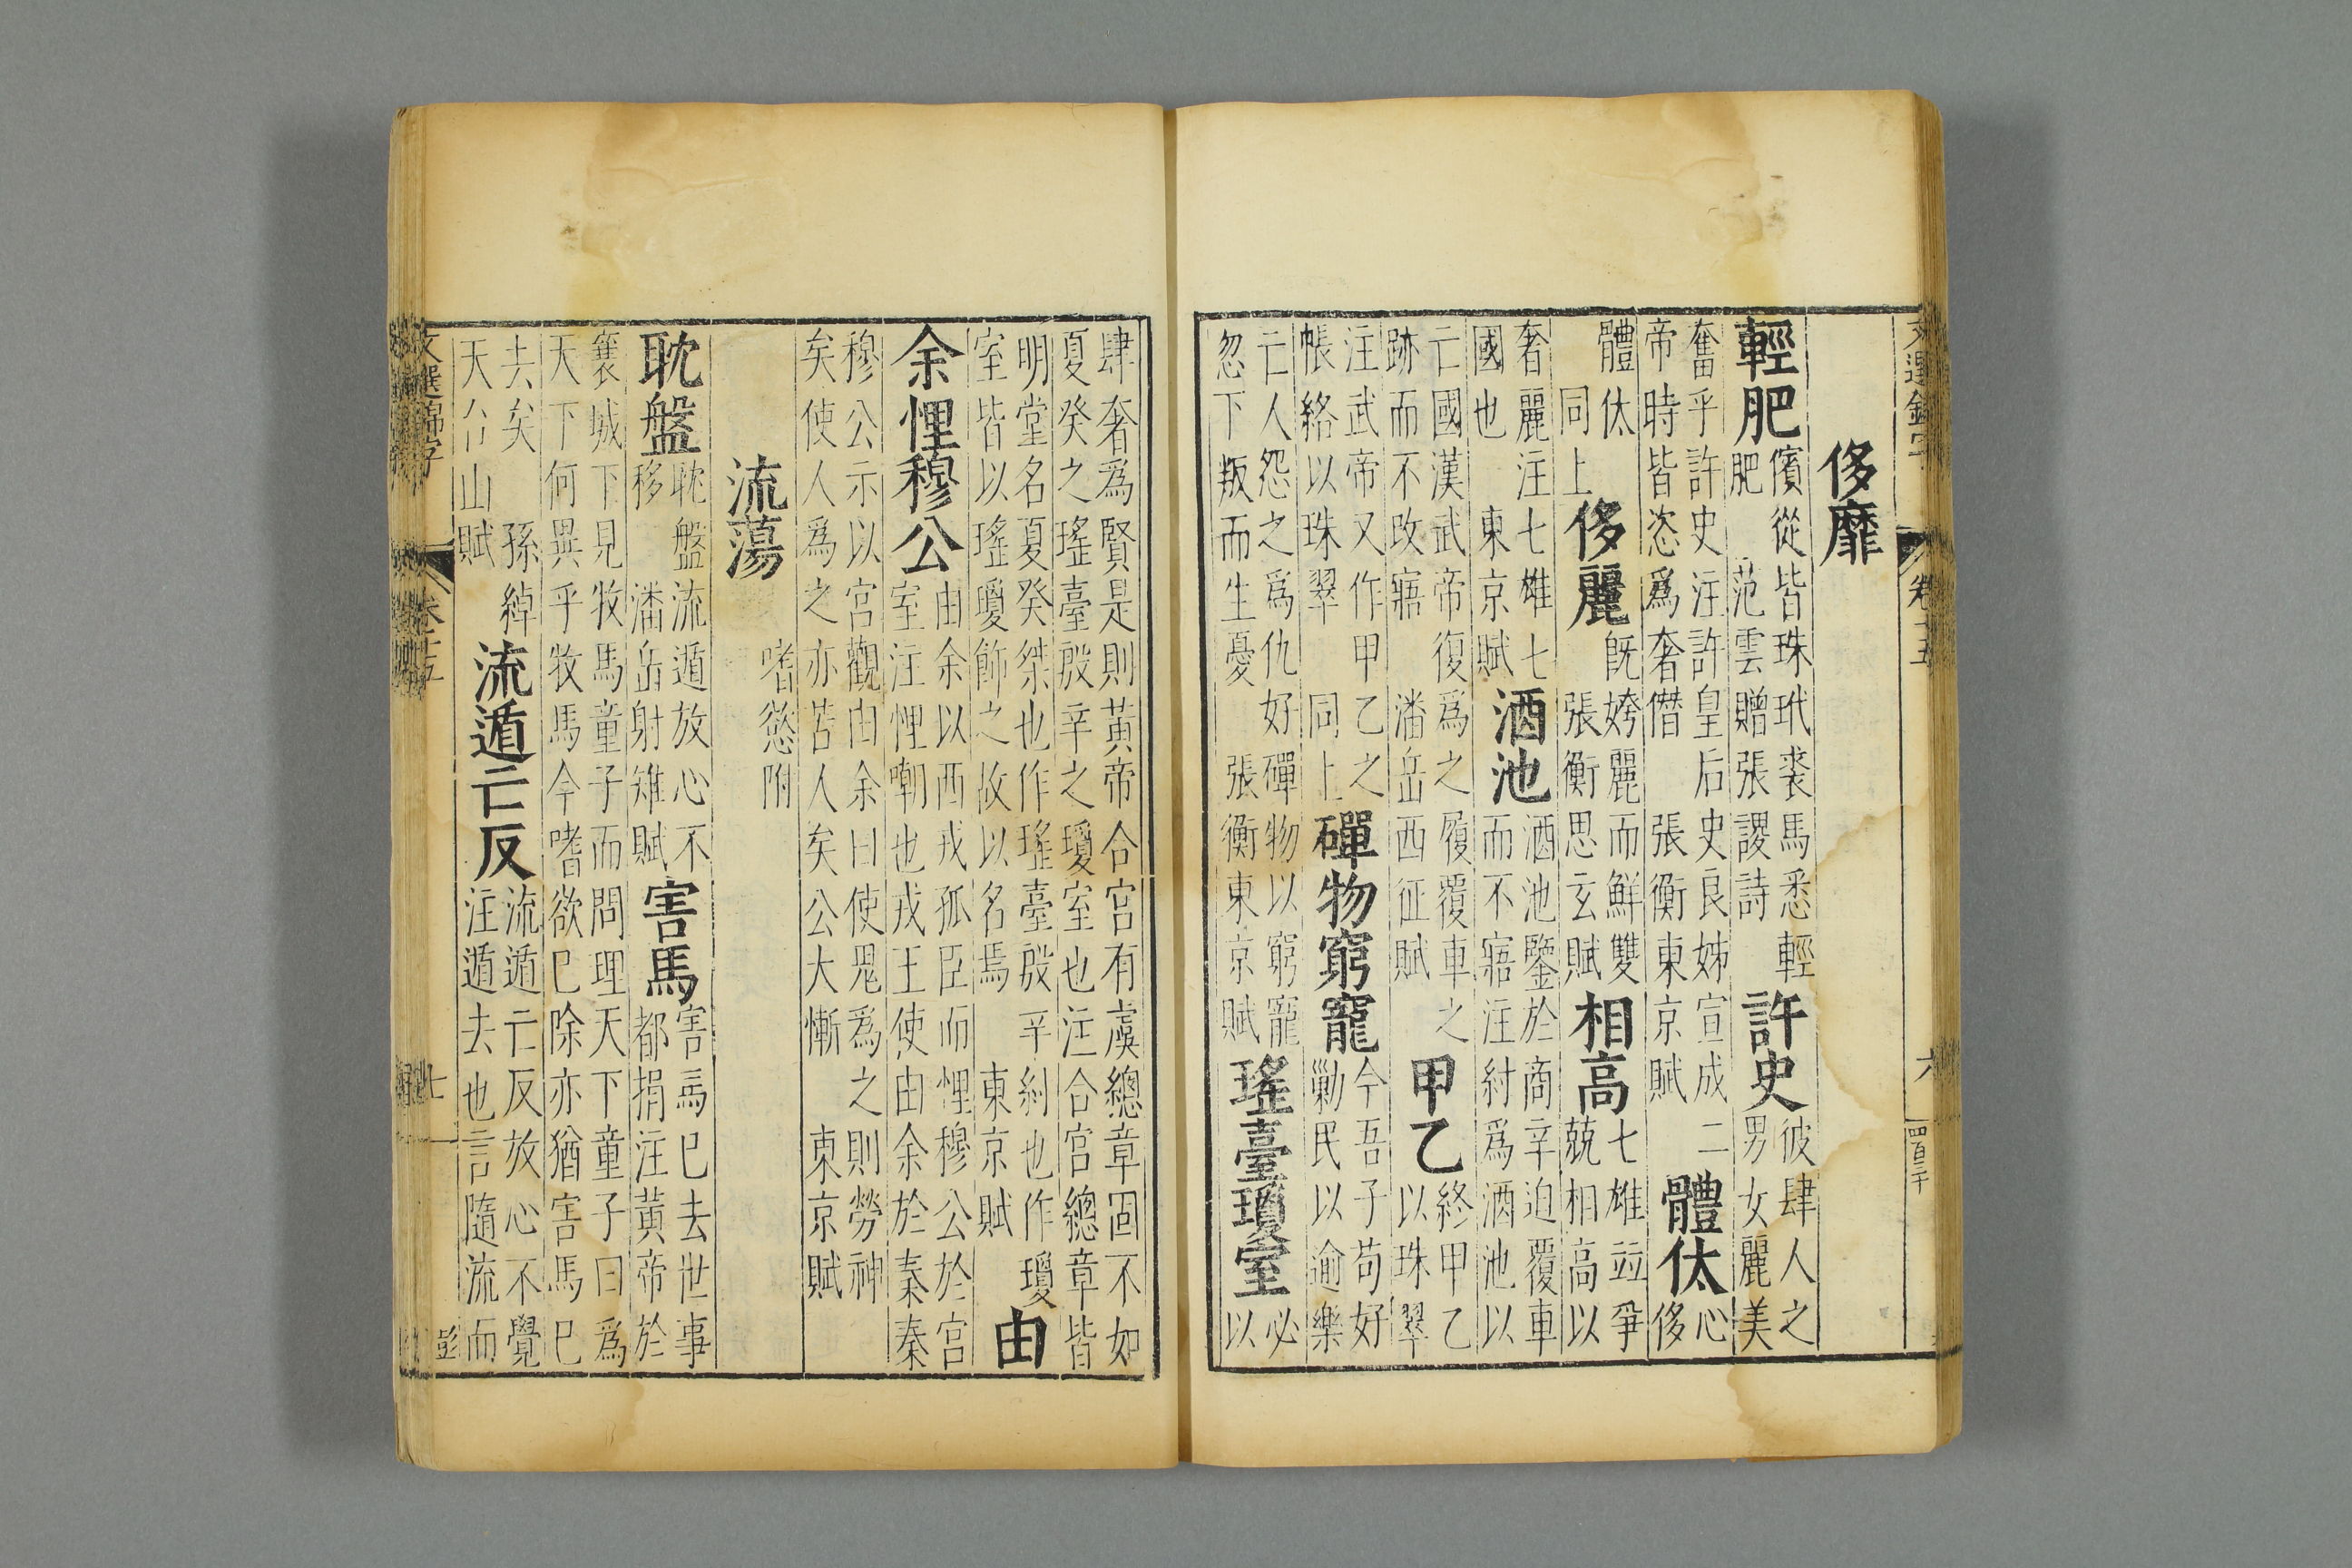 文選錦字 卷十五 六 四百三十
侈靡
輕肥儐從皆珠玳裘馬悉輕肥 范雲贈張謖詩許史彼肆人之男女麗美
奮乎許史注許皇后史良姊宣成二帝時皆恣爲奢僭 張衡東京賦體忲心侈
體忲 同上侈麗旣姱麗而鮮雙 張衡思玄賦相高七雄竝爭競相高以
奢麗注七雄七國也 東京賦酒池酒池鑒於商辛迫覆車而不寤注紂爲酒池以
亡國漢武帝復爲之履覆車之跡而不改寤 潘岳西征賦甲乙終甲乙以珠翠
注武帝又作甲乙之帳絡以珠翠 同上磾物窮寵今吾子苟好勦民以逾樂
亡人怨之爲仇好磾物以窮寵忽下叛而生憂 張衡東京賦瑤臺瓊室必以
肆奢爲賢是則黃帝合宮有虞總章固不如夏癸之瑤臺殷辛之瓊室也注合宮總章皆
明堂名夏癸桀也作瑤臺殷辛紂也作瓊室皆以瑤瓊飾之故以名焉 東京賦由
余悝穆公由余以西戎孤臣而悝穆公於宮室注悝嘲也戎王使由余於秦秦
穆公示以宮觀由余曰使鬼爲之則勞神矣使人爲之亦苦人矣公大慚 東京賦
流蕩 嗜慾附
耽盤耽盤流遁放心不移 潘岳射雉賦害馬害馬已去世事都捐注黃帝於
襄城下見牧馬童子而問理天下童子曰爲天下何異乎牧馬今嗜欲已除亦猶害馬已
去矣 孫綽天台山賦流遁亡反流遁亡反放心不覺注遁去也言隨流而
文選錦字 卷十五 七 彭